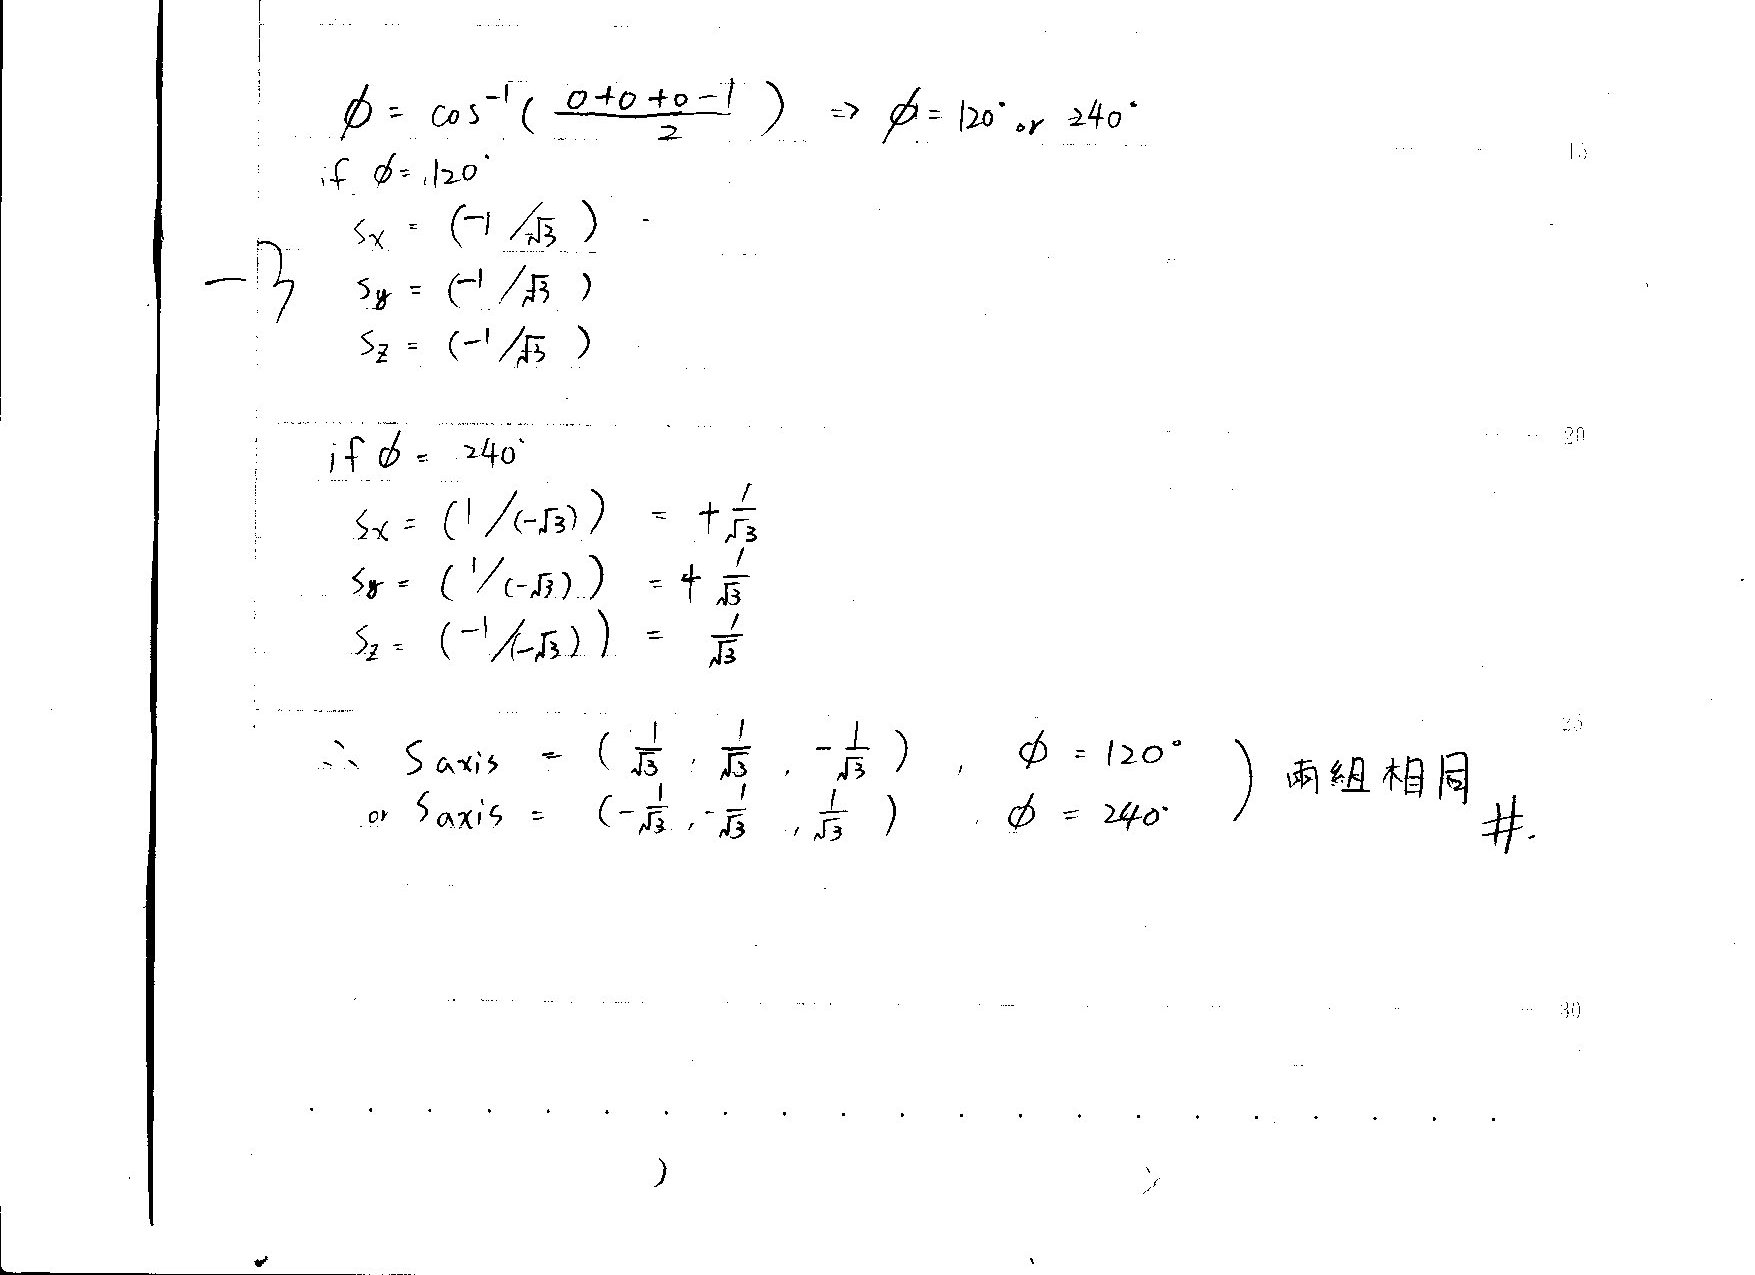 φ = cos⁻¹( (0+0+0-1)/2 ) => φ = 120° or 240°
15
if φ = 120°
Sx = (-1/√3)
-3
Sy = (-1/√3)
Sz = (-1/√3)
20
if φ = 240°
Sx = (1/(-√3)) = +1/√3
Sy = (1/(-√3)) = +1/√3
Sz = (-1/(-√3)) = 1/√3
25
∴ S axis = (1/√3, 1/√3, -1/√3), φ = 120°
or S axis = (-1/√3, -1/√3, 1/√3), φ = 240° ) 兩組相同 #.
30